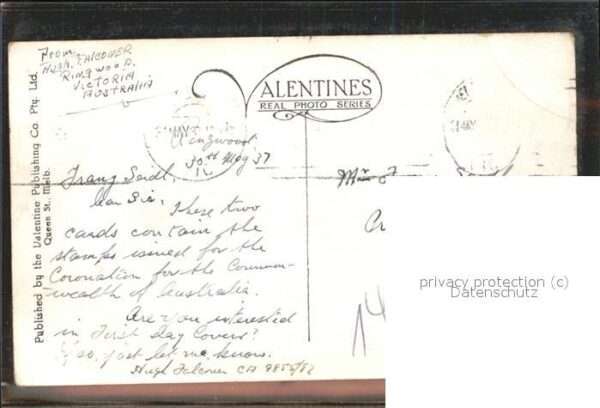 From
Hugh. Falconer
Ringwood.
Victoria
Australia
VALENTINES
REAL PHOTO SERIES
Published by the Valentine Publishing Co. Pty. Ltd.
Queen St., Melb.
MAY
MAY
Ringwood.
30th May 37
Franz Seidl,
Dear Sir,
These two
cards contain the
stamps issued for the
Coronation for the Common-
wealth of Australia.
Are you interested
in First Day Covers?
If so, just let me know.
Hugh Falconer CA
privacy protection (c)
Datenschutz